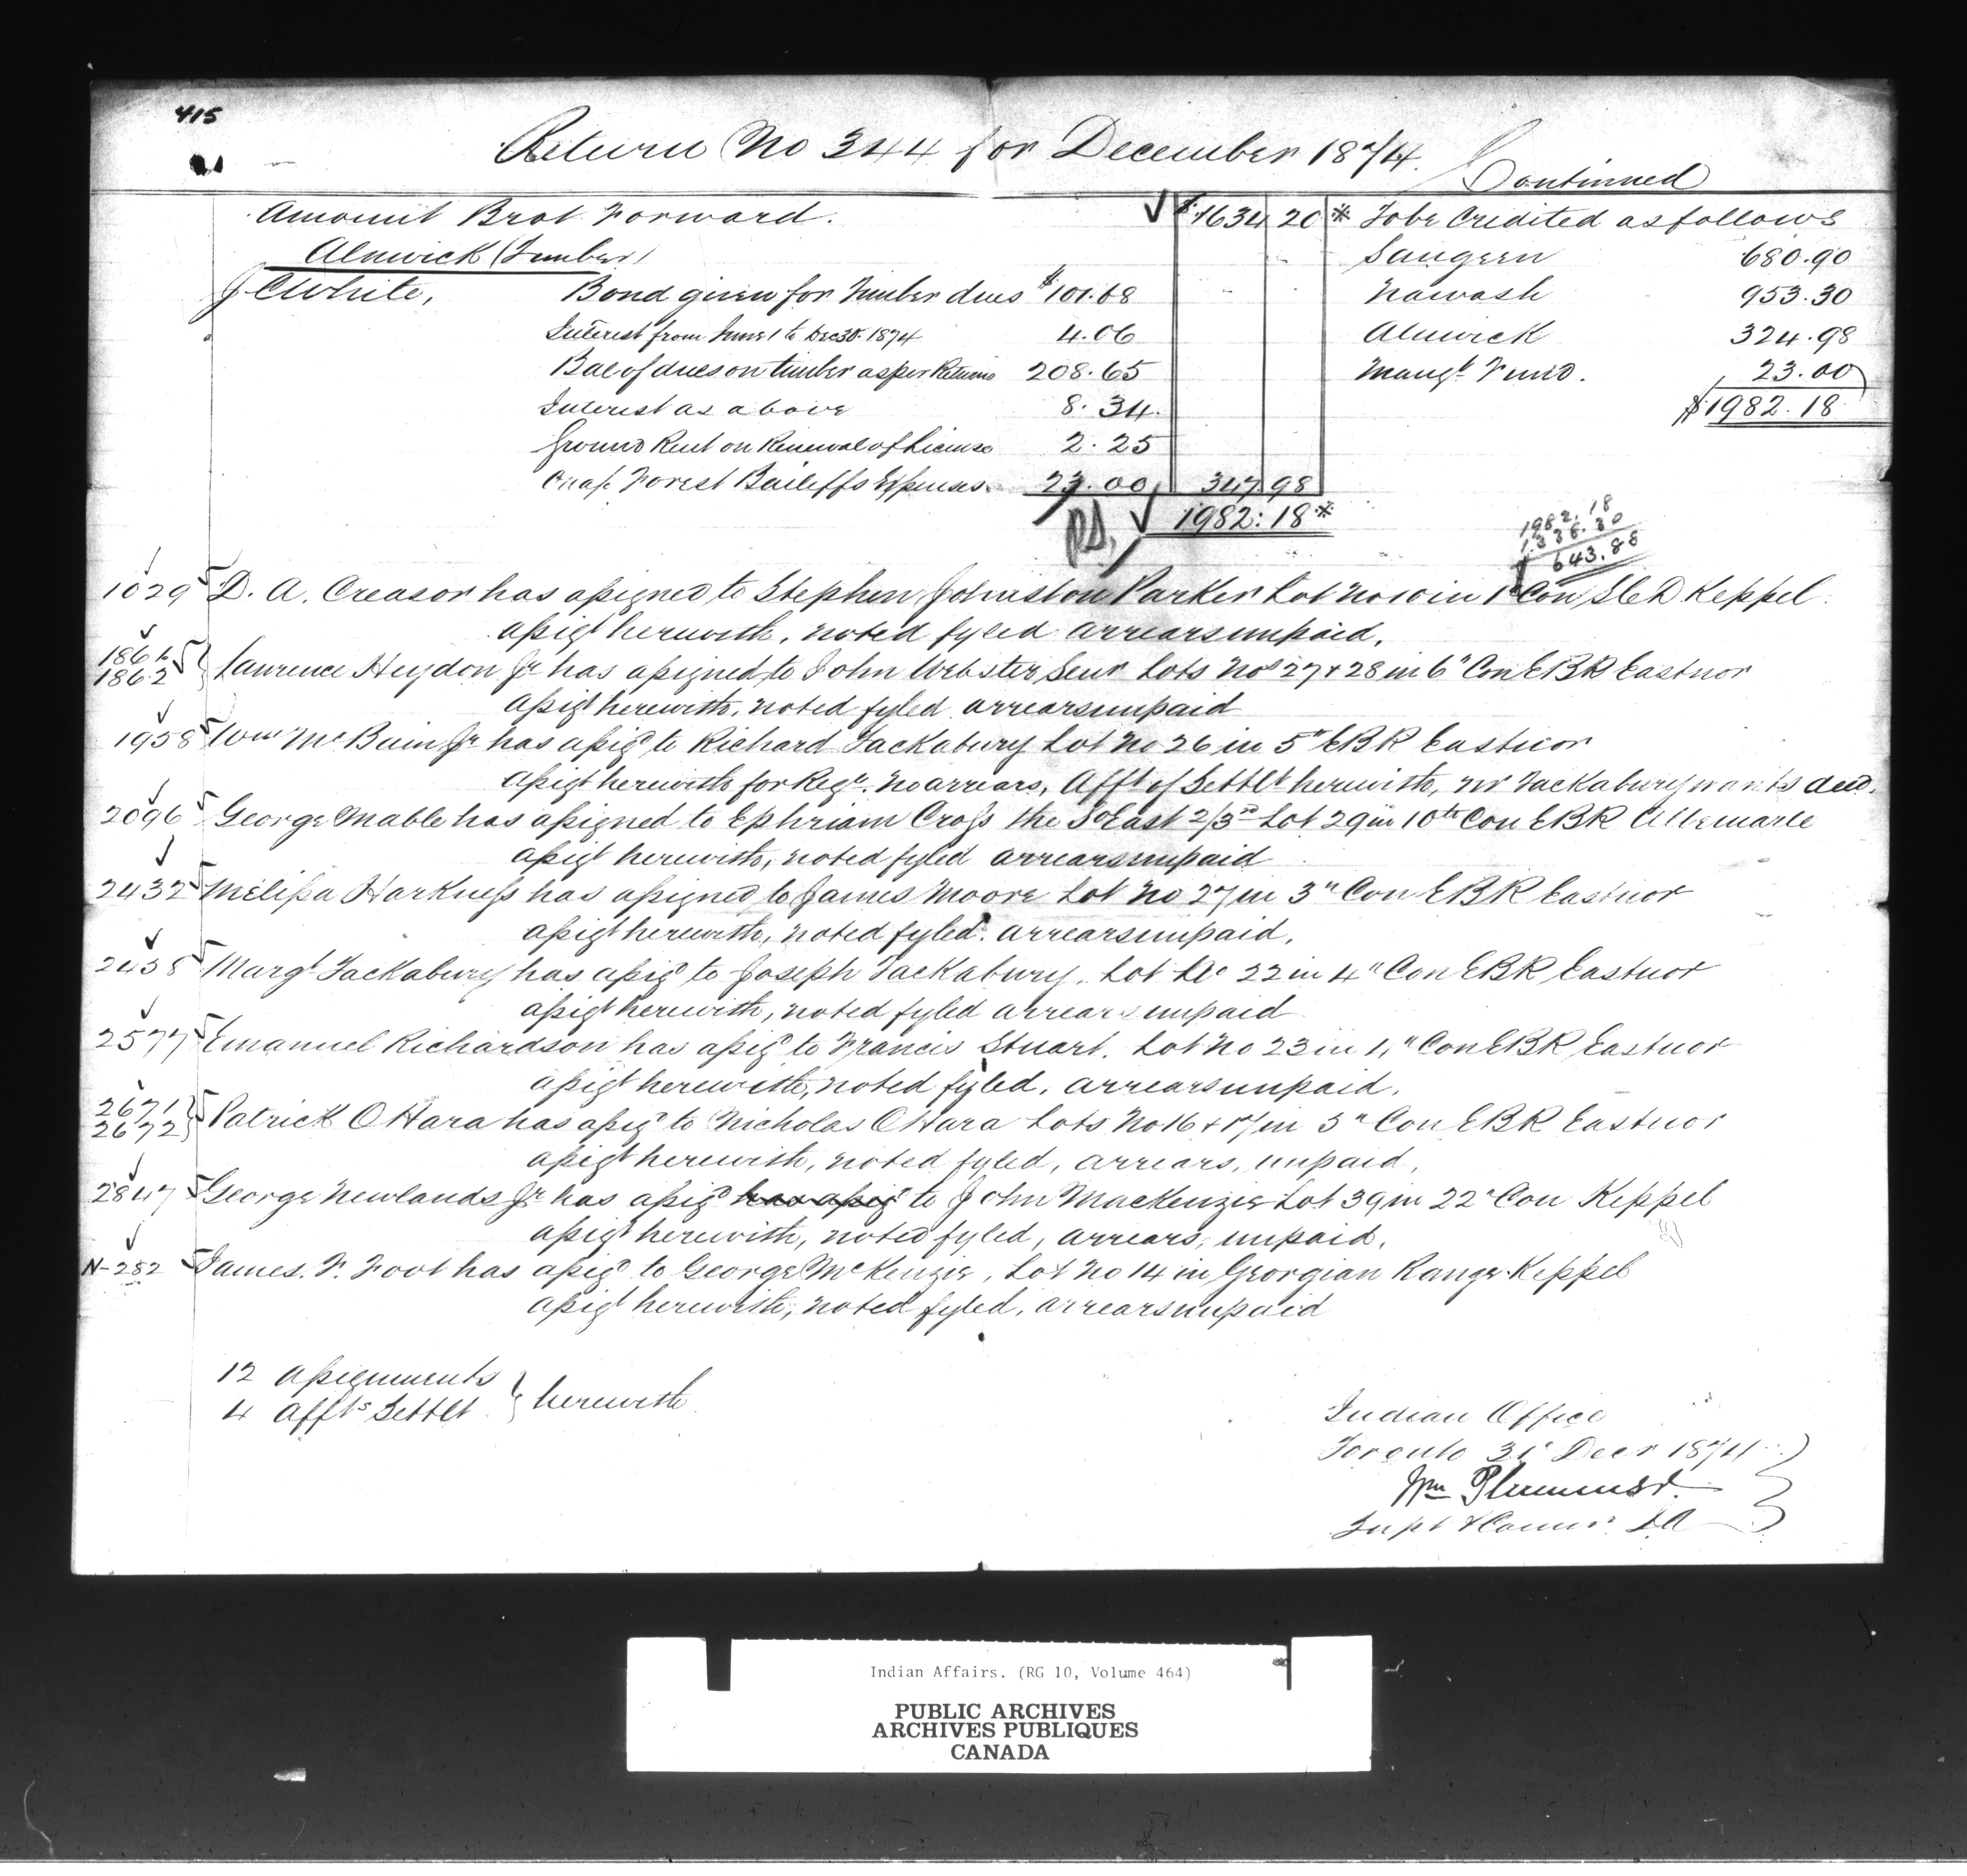 415
Return No 344 for December 1874.
Continued
Amount Brot Forward. $1634 20 * To be Credited as follows
Alnwick (Timber) Saugeen 680.90
J C White, Bond given for Timber dues $101.68 Nawash 953.30
Interest from June 1 to Dec 30. 1874 4.06 Alnwick 324.98
Bal of dues on timber as per Returns 208.65 Mangt Fund. 23.00
Interest as above 8.34. $1982.18
Ground Rent on Renewal of License 2.25
Forest Bailiffs Expenses. 23.00 347 98
1982:18*
1982.18
643.88
1029 D. A. Creasor has assigned to Stephen Johnston Parker Lot No 10 in 1st Con SCD Keppel.
assigt herewith, noted fyled arrears unpaid.
1861
1862 } Laurence Heydon Jr has assigned to John Webster Senr Lots Nos 27 + 28 in 6" Con EBR Eastnor
assigt herewith, noted fyled arrears unpaid
1958 Wm McBain Jr has assigd to Richard Tackabury Lot No 26 in 5" EBR Eastnor
assigt herewith for Regn. No arrears, Afft of Settlt herewith, Mr Tackabury wants deed.
2096 George Mable has assigned to Ephriam Cross the So East 2/3rd Lot 29 in 10th Con EBR Albemarle
assigt herewith, noted fyled arrears unpaid
2432 Melissa Harkness has assigned to James Moore Lot No 27 in 3" Con EBR Eastnor
assigt herewith, noted fyled. arrears unpaid.
2438 Margt Tackabury has assigd to Joseph Tackabury. Lot No 22 in 4" Con EBR Eastnor
assigt herewith, noted fyled arrears unpaid
2577 Emanuel Richardson has assigd to Francis Stuart. Lot No 23 in Con EBR Eastnor
assigt herewith, noted fyled, arrears unpaid.
2671
2672 } Patrick O Hara has assigd to Nicholas O Hara Lots No 16 + 17 in 3" Con EBR Eastnor
assigt herewith, noted fyled, arrears, unpaid,
2847 George Newlands Jr has assigd has assigd to John MacKenzie Lot 39 in 22" Con Keppel
assigt herewith, noted fyled, arrears, unpaid.
N-282 James. F. Foot has assigd to George McKenzie, Lot No 14 in Georgian Range Keppel
assigt herewith, noted fyled, arrears unpaid
12 assignments
4 Affts Settlt } herewith
Indian Office
Toronto 31" Decr 1874
Wm Plummer.
Supt & Commr. I A
Indian Affairs. (RG 10, Volume 464)
PUBLIC ARCHIVES
ARCHIVES PUBLIQUES
CANADA